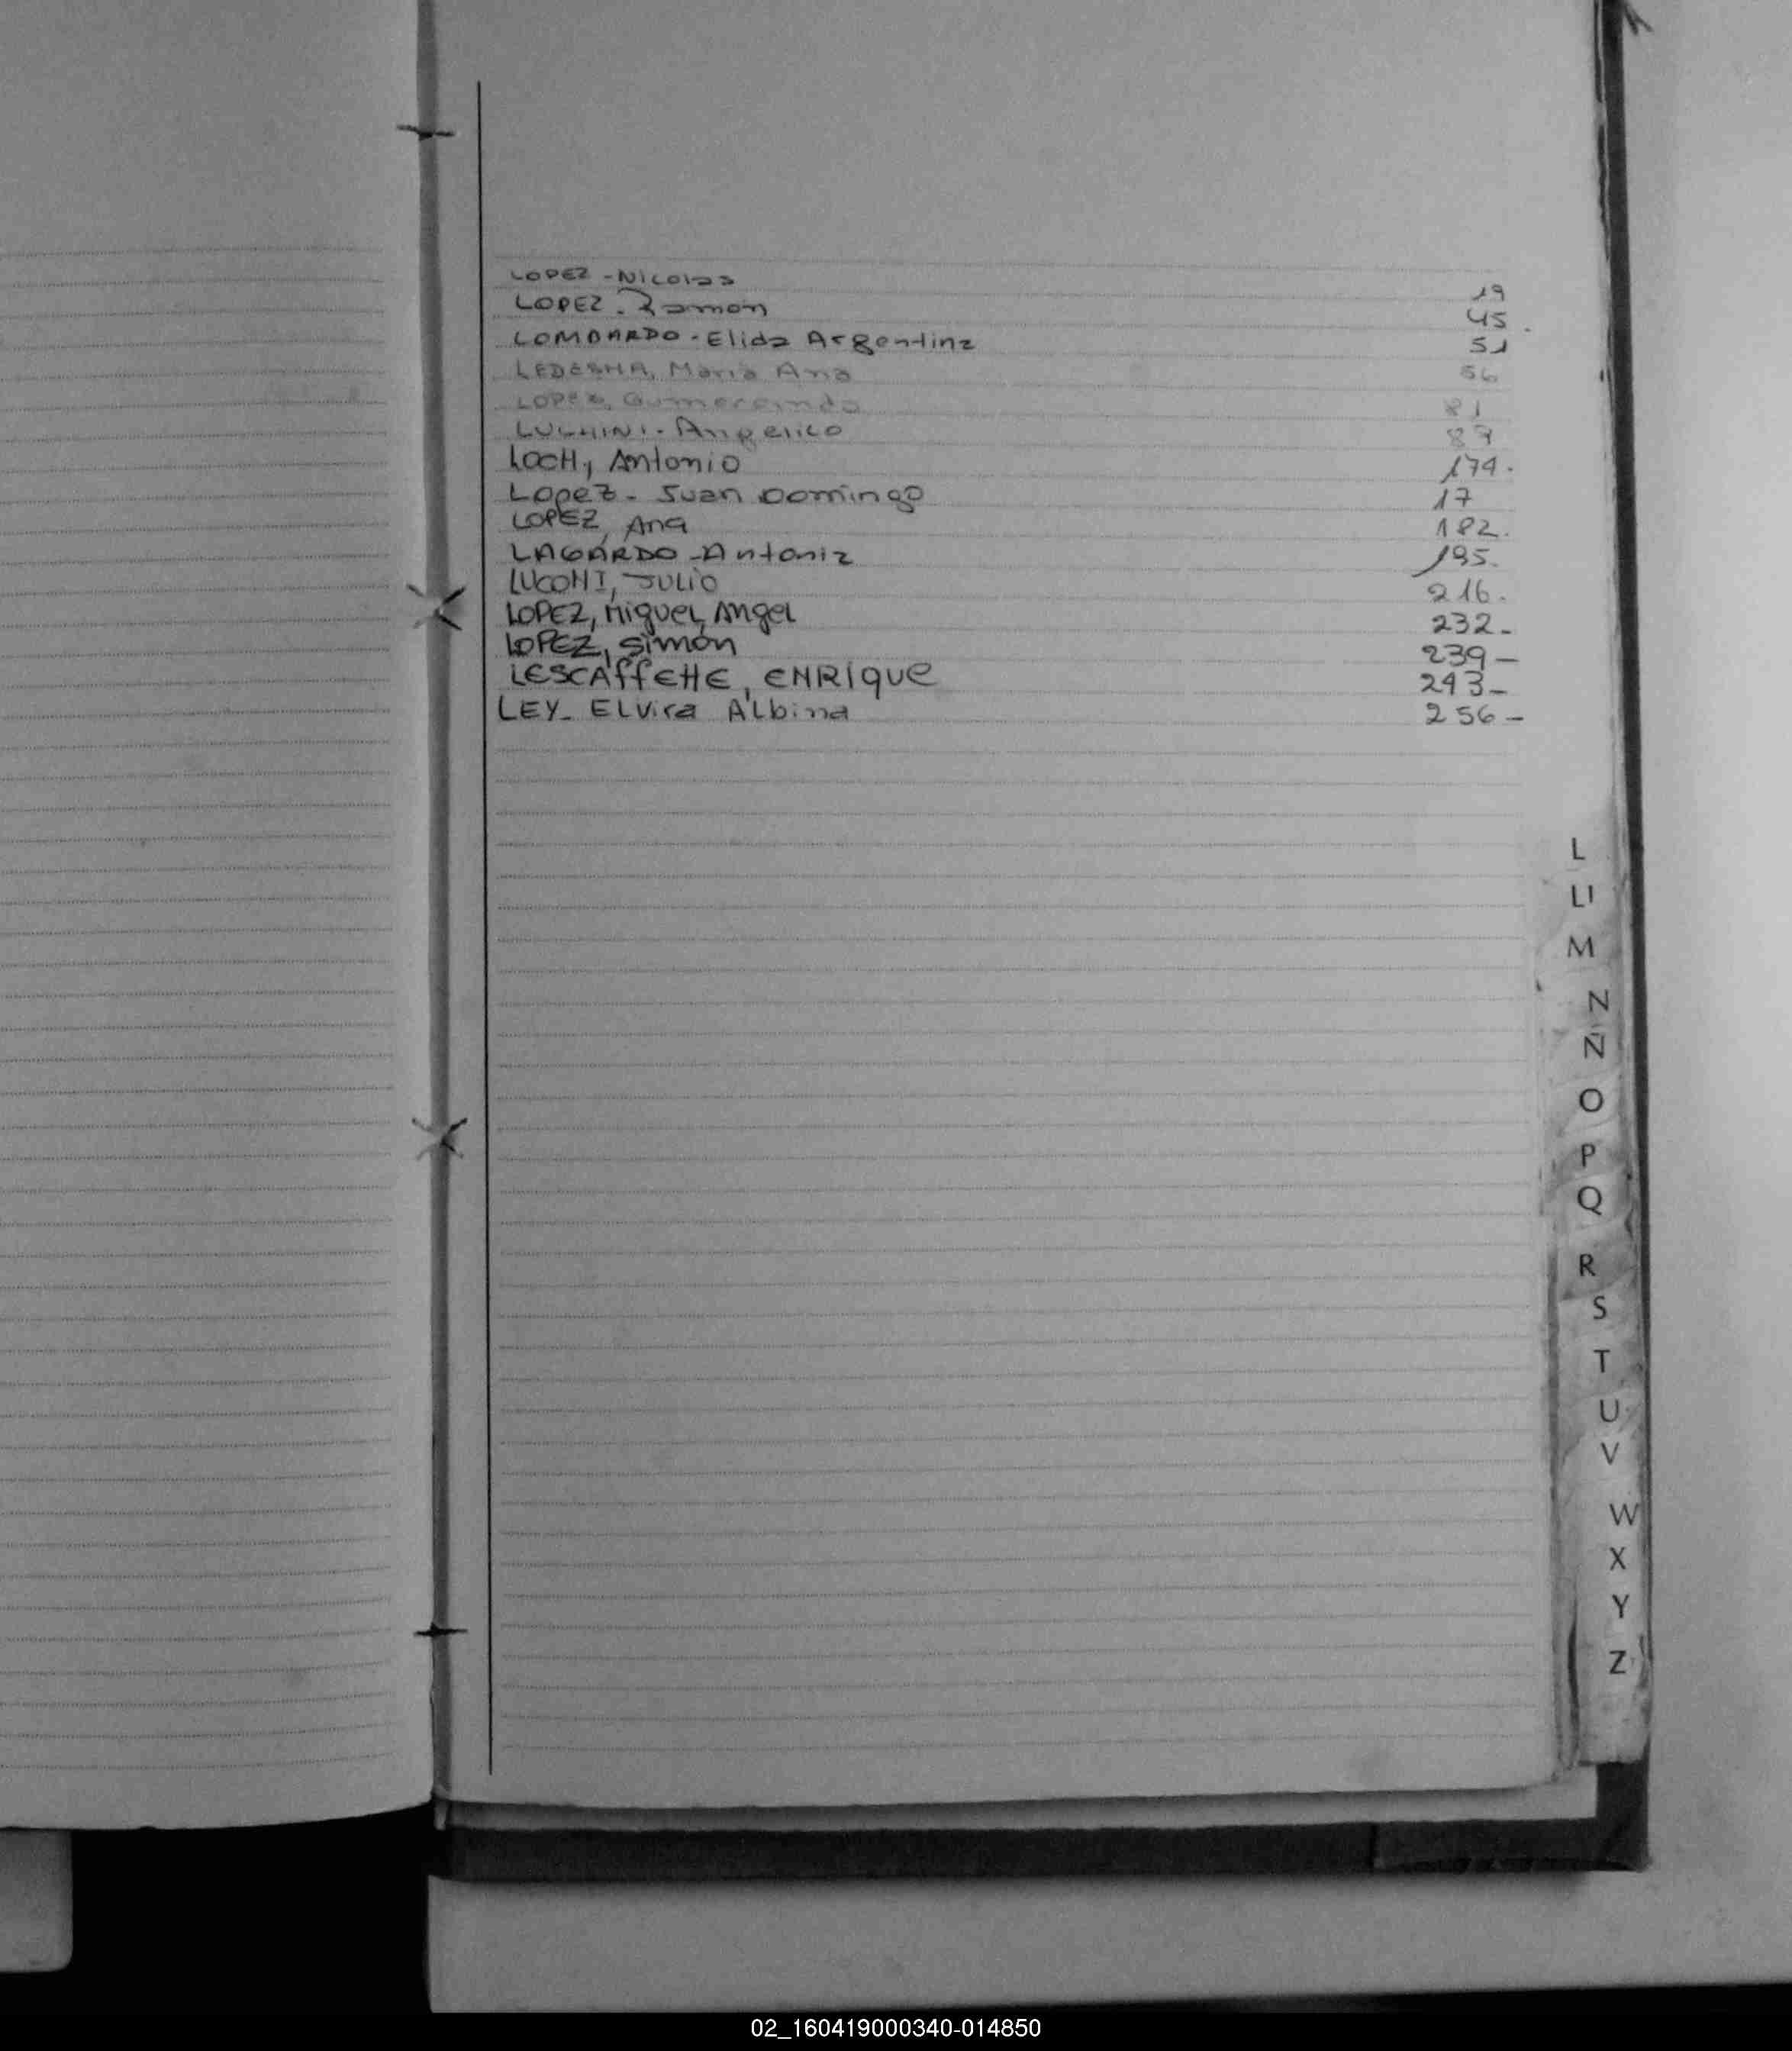 LOPEZ - Nicolas 19
LOPEZ. Ramón 45
LOMBARDO - Elida Argentina 51
LEDESMA, Maria Ana 56
LOPEZ, Gumercindo 81
LUCHINI - Angelico 87
LOCH, Antonio 174.
LOPEZ - Juan Domingo 17
LOPEZ, Ana 182.
LAGARDO - Antonia 195.
LUCONI, JULIO 216.
LOPEZ, Miguel Angel 232-
LOPEZ, Simón 239-
LESCAffETTE, ENRIque 243-
LEY- ELvira ALbina 256-
L
Ll
M
N
Ñ
O
P
Q
R
S
T
U
V
W
X
Y
Z
02_160419000340-014850